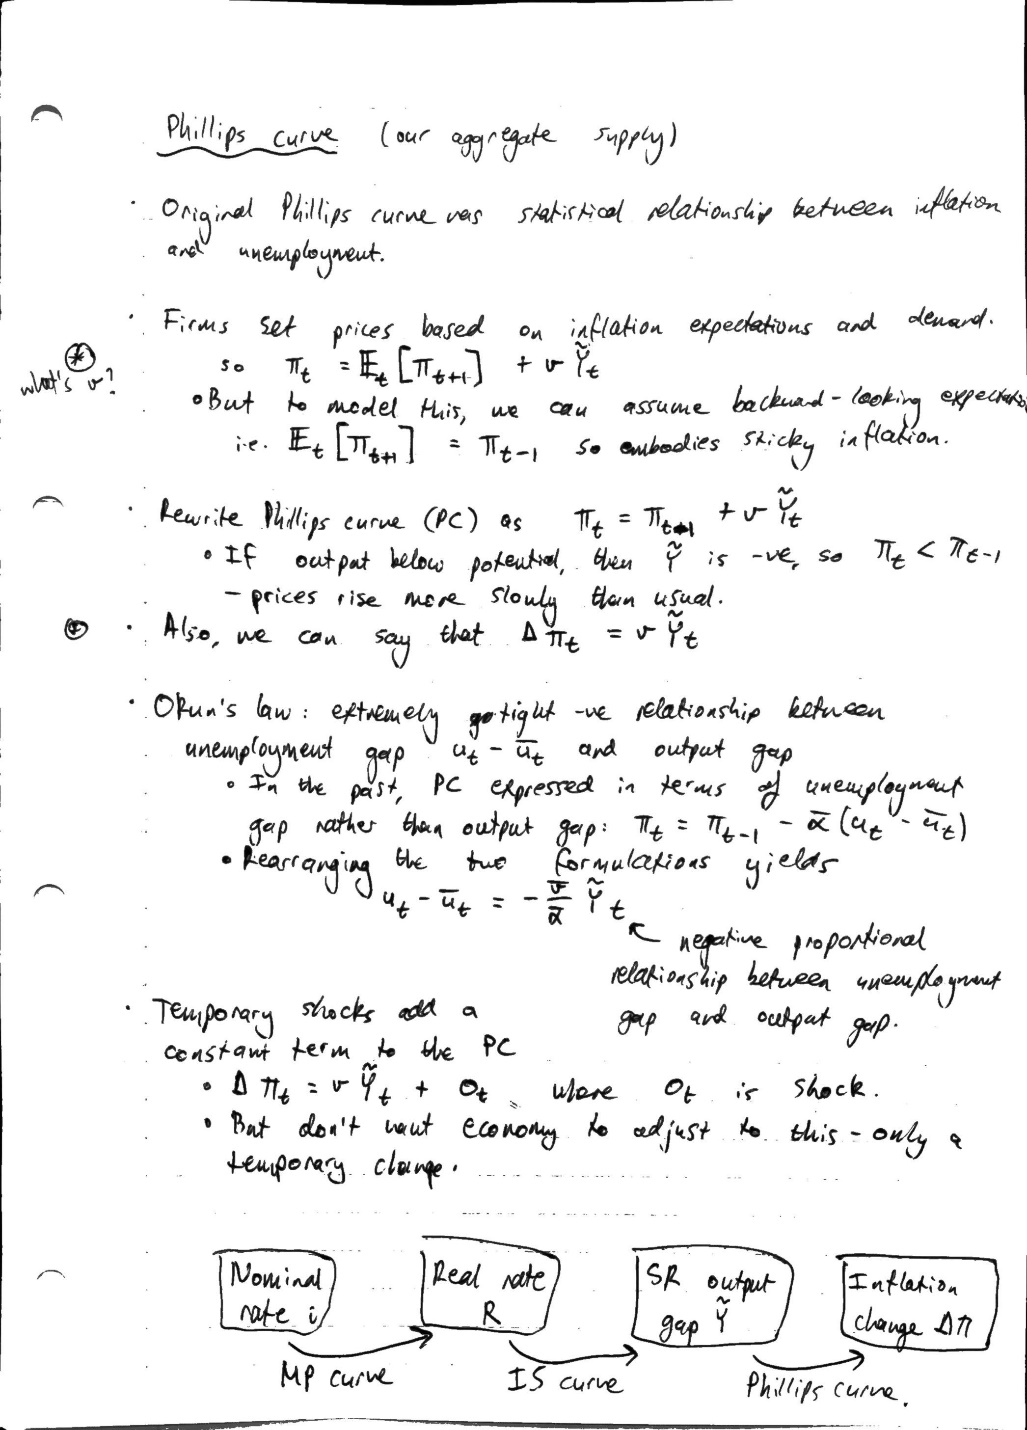 Phillips curve (our aggregate supply)
· Original Phillips curve was statistical relationship between inflation
and unemployment.
· Firms set prices based on inflation expectations and demand.
so π_t = 𝔼_t [π_{t+1}] + v Ỹ_t
⊛
what's v?
∘ But to model this, we can assume backward-looking expectati
i.e. 𝔼_t [π_{t+1}] = π_{t-1} so embodies sticky inflation.
· Rewrite Phillips curve (PC) as π_t = π_{t-1} + v Ỹ_t
∘ If output below potential, then Ỹ is -ve, so π_t < π_{t-1}
- prices rise more slowly than usual.
⊛ · Also, we can say that Δπ_t = v Ỹ_t
· Okun's law: extremely tight -ve relationship between
unemployment gap u_t - ū_t and output gap
∘ In the past, PC expressed in terms of unemployment
gap rather than output gap: π_t = π_{t-1} - ᾱ (u_t - ū_t)
• Rearranging the two formulations yields
u_t - ū_t = - v̄/ᾱ Ỹ_t
negative proportional
relationship between unemployment
gap and output gap.
· Temporary shocks add a
constant term to the PC
∘ Δπ_t = v Ỹ_t + O_t where O_t is shock.
∘ But don't want economy to adjust to this - only a
temporary change.
Nominal
rate i
Real rate
R
SR output
gap Ỹ
Inflation
change Δπ
MP curve
IS curve
Phillips curve.